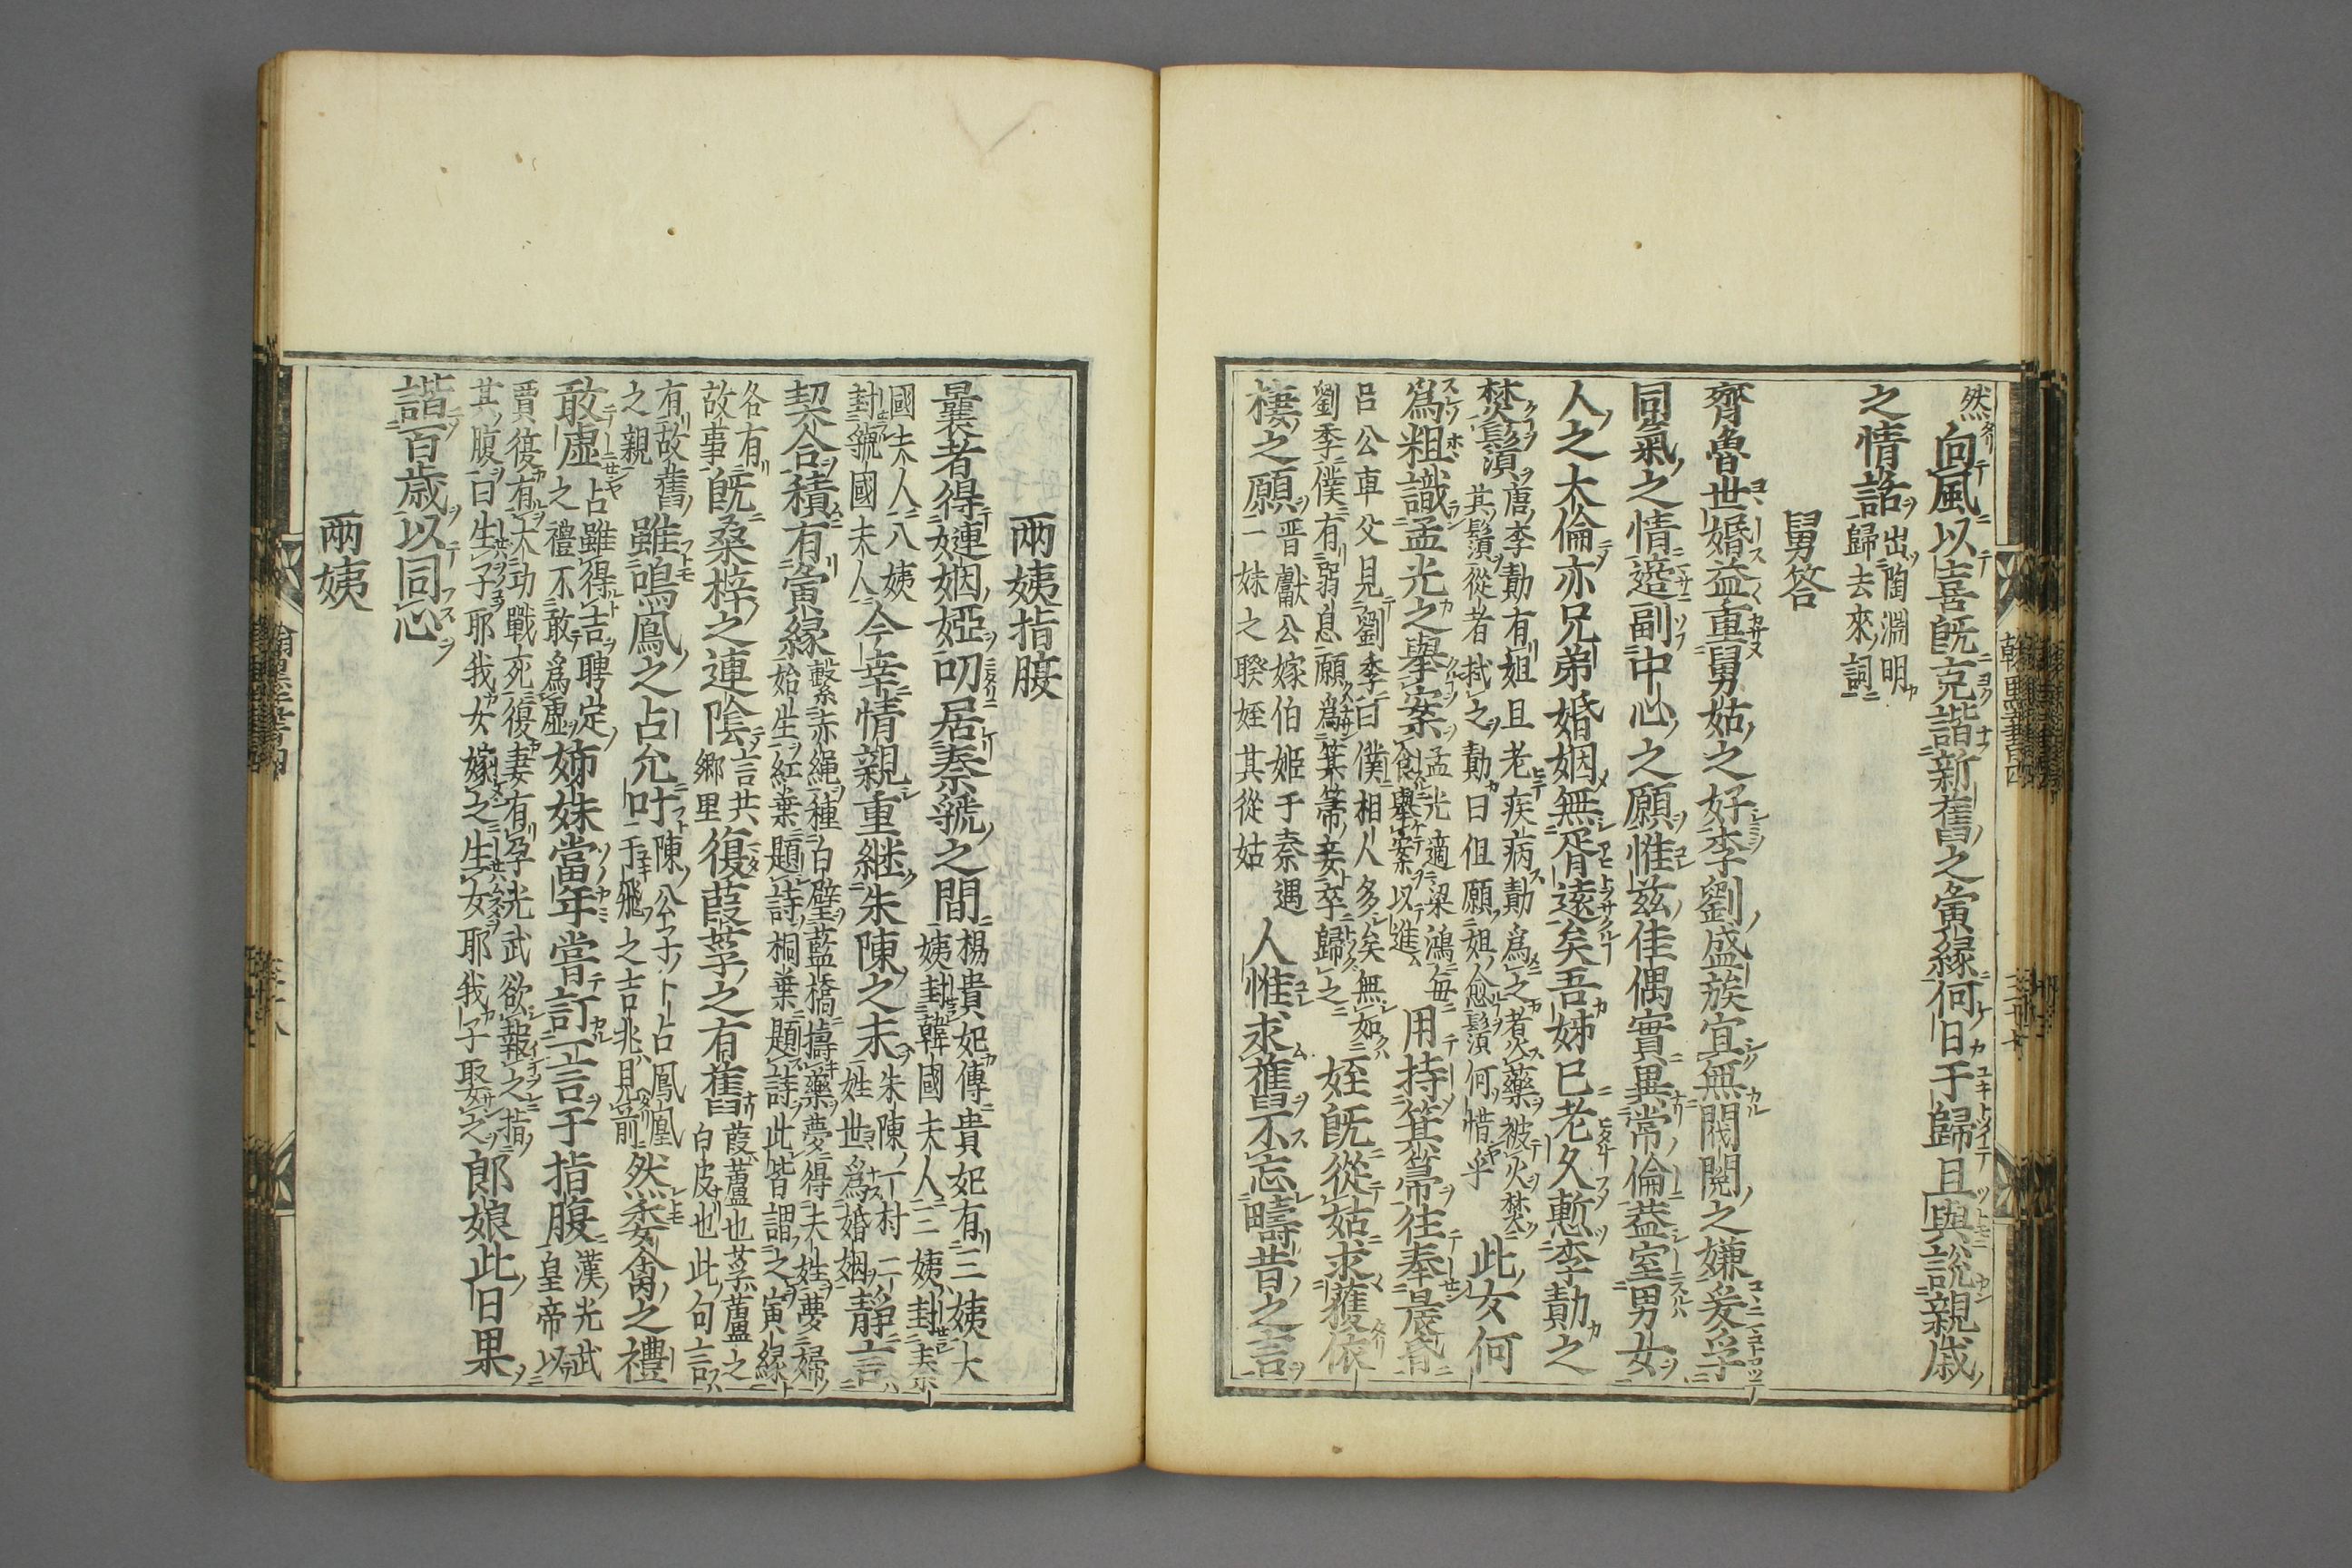 然向風以喜既克諧新舊之寅緣何日于歸且與說親戚
之情話出陶淵明歸去來詞
舅答
齊魯世婚益重舅姑之好李劉盛族宜無閥閱之嫌爰孚
同氣之情造副中心之願惟茲佳偶實異常倫蓋室男女
人之太倫亦兄弟婚姻無胥遠矣吾姊已老久慙李勣之
焚鬚唐李勣有姐且老疾病勣爲之煮藥被火焚其鬚從者拭之勣曰但願姐愈鬚何惜乎此女何
爲粗識孟光之擧案孟光適梁鴻每食擧案以進用持箕箒往奉晨昏
呂公車父見劉季曰僕相人多矣無如劉季僕有弱息願爲箕箒妾卒歸之姪既從姑求蒦依
棲之願晋獻公嫁伯姬于秦遇一妹之睽姪其從姑人惟求舊不忘疇昔之言
兩姨指腹
曩者得連姻婭叨居秦虢之間楊貴妃傳貴妃有三姨大姨封韓國夫人三姨封秦
國夫人八姨封虢國夫人今幸情親重継朱陳之未朱陳一村二姓世爲婚姻靜言
契合積有寅緣繫赤繩種白壁藍橋擣藥夢得夫姓夢婦始生紅葉題詩桐葉題詩此皆謂之寅緣
各有故事既桑梓之連陰言共鄉里復葭莩之有舊葭蘆也莩蘆之白皮也此句言
有故舊之親雖鳴鳳之占允叶陳公子卜占鳳凰于飛之吉兆見前然委禽之禮
敢虛占雖得吉聘定之禮不敢爲虛姊妹當年嘗訂言于指腹漢光武皇帝以
賈復有大功戰死復妻有孕光武欲報之指其腹曰生子耶我女嫁之生女耶我子娶之郎娘此日果
諧百歲以同心
兩姨